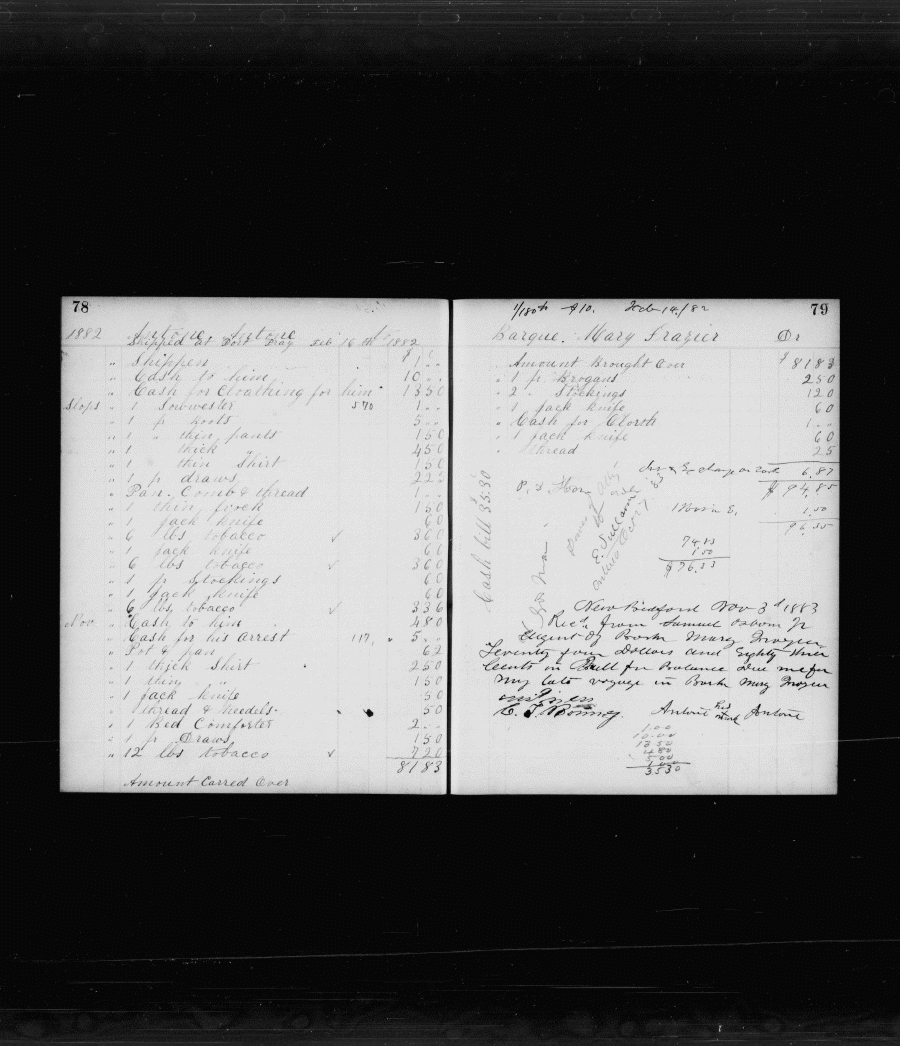 78
1882 Antone Antone
Shipped at Port Tray Feb 16th 1882
" Shippen $ 1 ..
" Cash to him 10 ..
" Cash for Cloathing for him 13 50
Slops " 1 Souwester 570 1 ..
" 1 pr boots 5 ..
" 1 " thin pants 1 50
" 1 thick " 4 50
" 1 thin Shirt 1 50
" 1 p draws 2 25
" Pan. Comb & thread 1 ..
" 1 thin frock 1 50
" 1 jack knife 60
" 6 lbs tobacco ✓ 3 60
" 1 jack knife 60
" 6 lbs tobacco ✓ 3 60
" 1 p Stockings 60
" 1 jack knife 60
" 6 lbs tobacco ✓ 3 36
Nov " Cash to him 4 80
" Cash for his arrest 117 " 5 ..
" Pot & pan 62
" 1 thick Shirt 2 50
" 1 thin " 1 50
" 1 jack knife 50
" thread & needels 50
" 1 Bed Comforter 2 ..
" 1 p Draws 1 50
" 12 lbs tobacco ✓ 7 20
81 83
Amount Carred Over
1/180th $10. Feb 14/82 79
Barque. Mary Frazier Dr
Amount Brought Over $ 81 83
" 1 pr Brogans 2 50
" 2 " Stockings 1 20
" 1 jack knife 60
" Cash for 1 ..
" 1 jack knife 60
" thread 25
6.87
$ 94.85
1.50
96.35
74.83
1.50
$76.33
Cash bill 35.30
E. Sullavan
New Bedford Nov 3d 1883
Recd from Samuel Osborn Jr
Agent of Bark Mary Frazier
Seventy four Dollars and Eighty three
Cents in full for Balance Due me for
my late voyage in Bark Mary Frazier
witness
C. T. Bonney. Antone his mark Antone
1.00
10.00
13.50
4.80
5.00
1.00
35.30